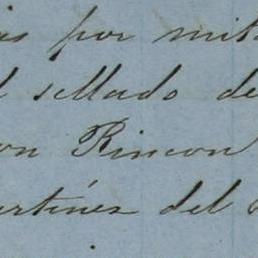 por mit
sellado de
on Rincon
artinez del